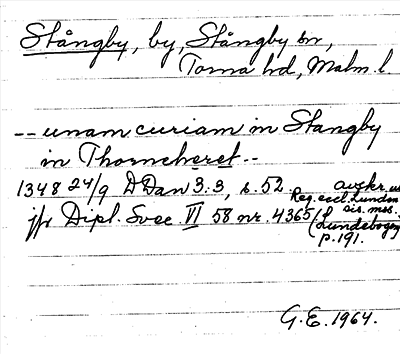 Stångby, by, Stångby sn,
Torna hd, Malm. l
-- unam curiam in Stangby
in Thorneheret --
1348 24/9 DDan 3:3, s. 52. avskr. u
Reg. eccl. Lunden
jfr Dipl. Svec. VI 58 nr. 4365 sis. mss.
(Lundebogen
p. 191.
G.E. 1964.